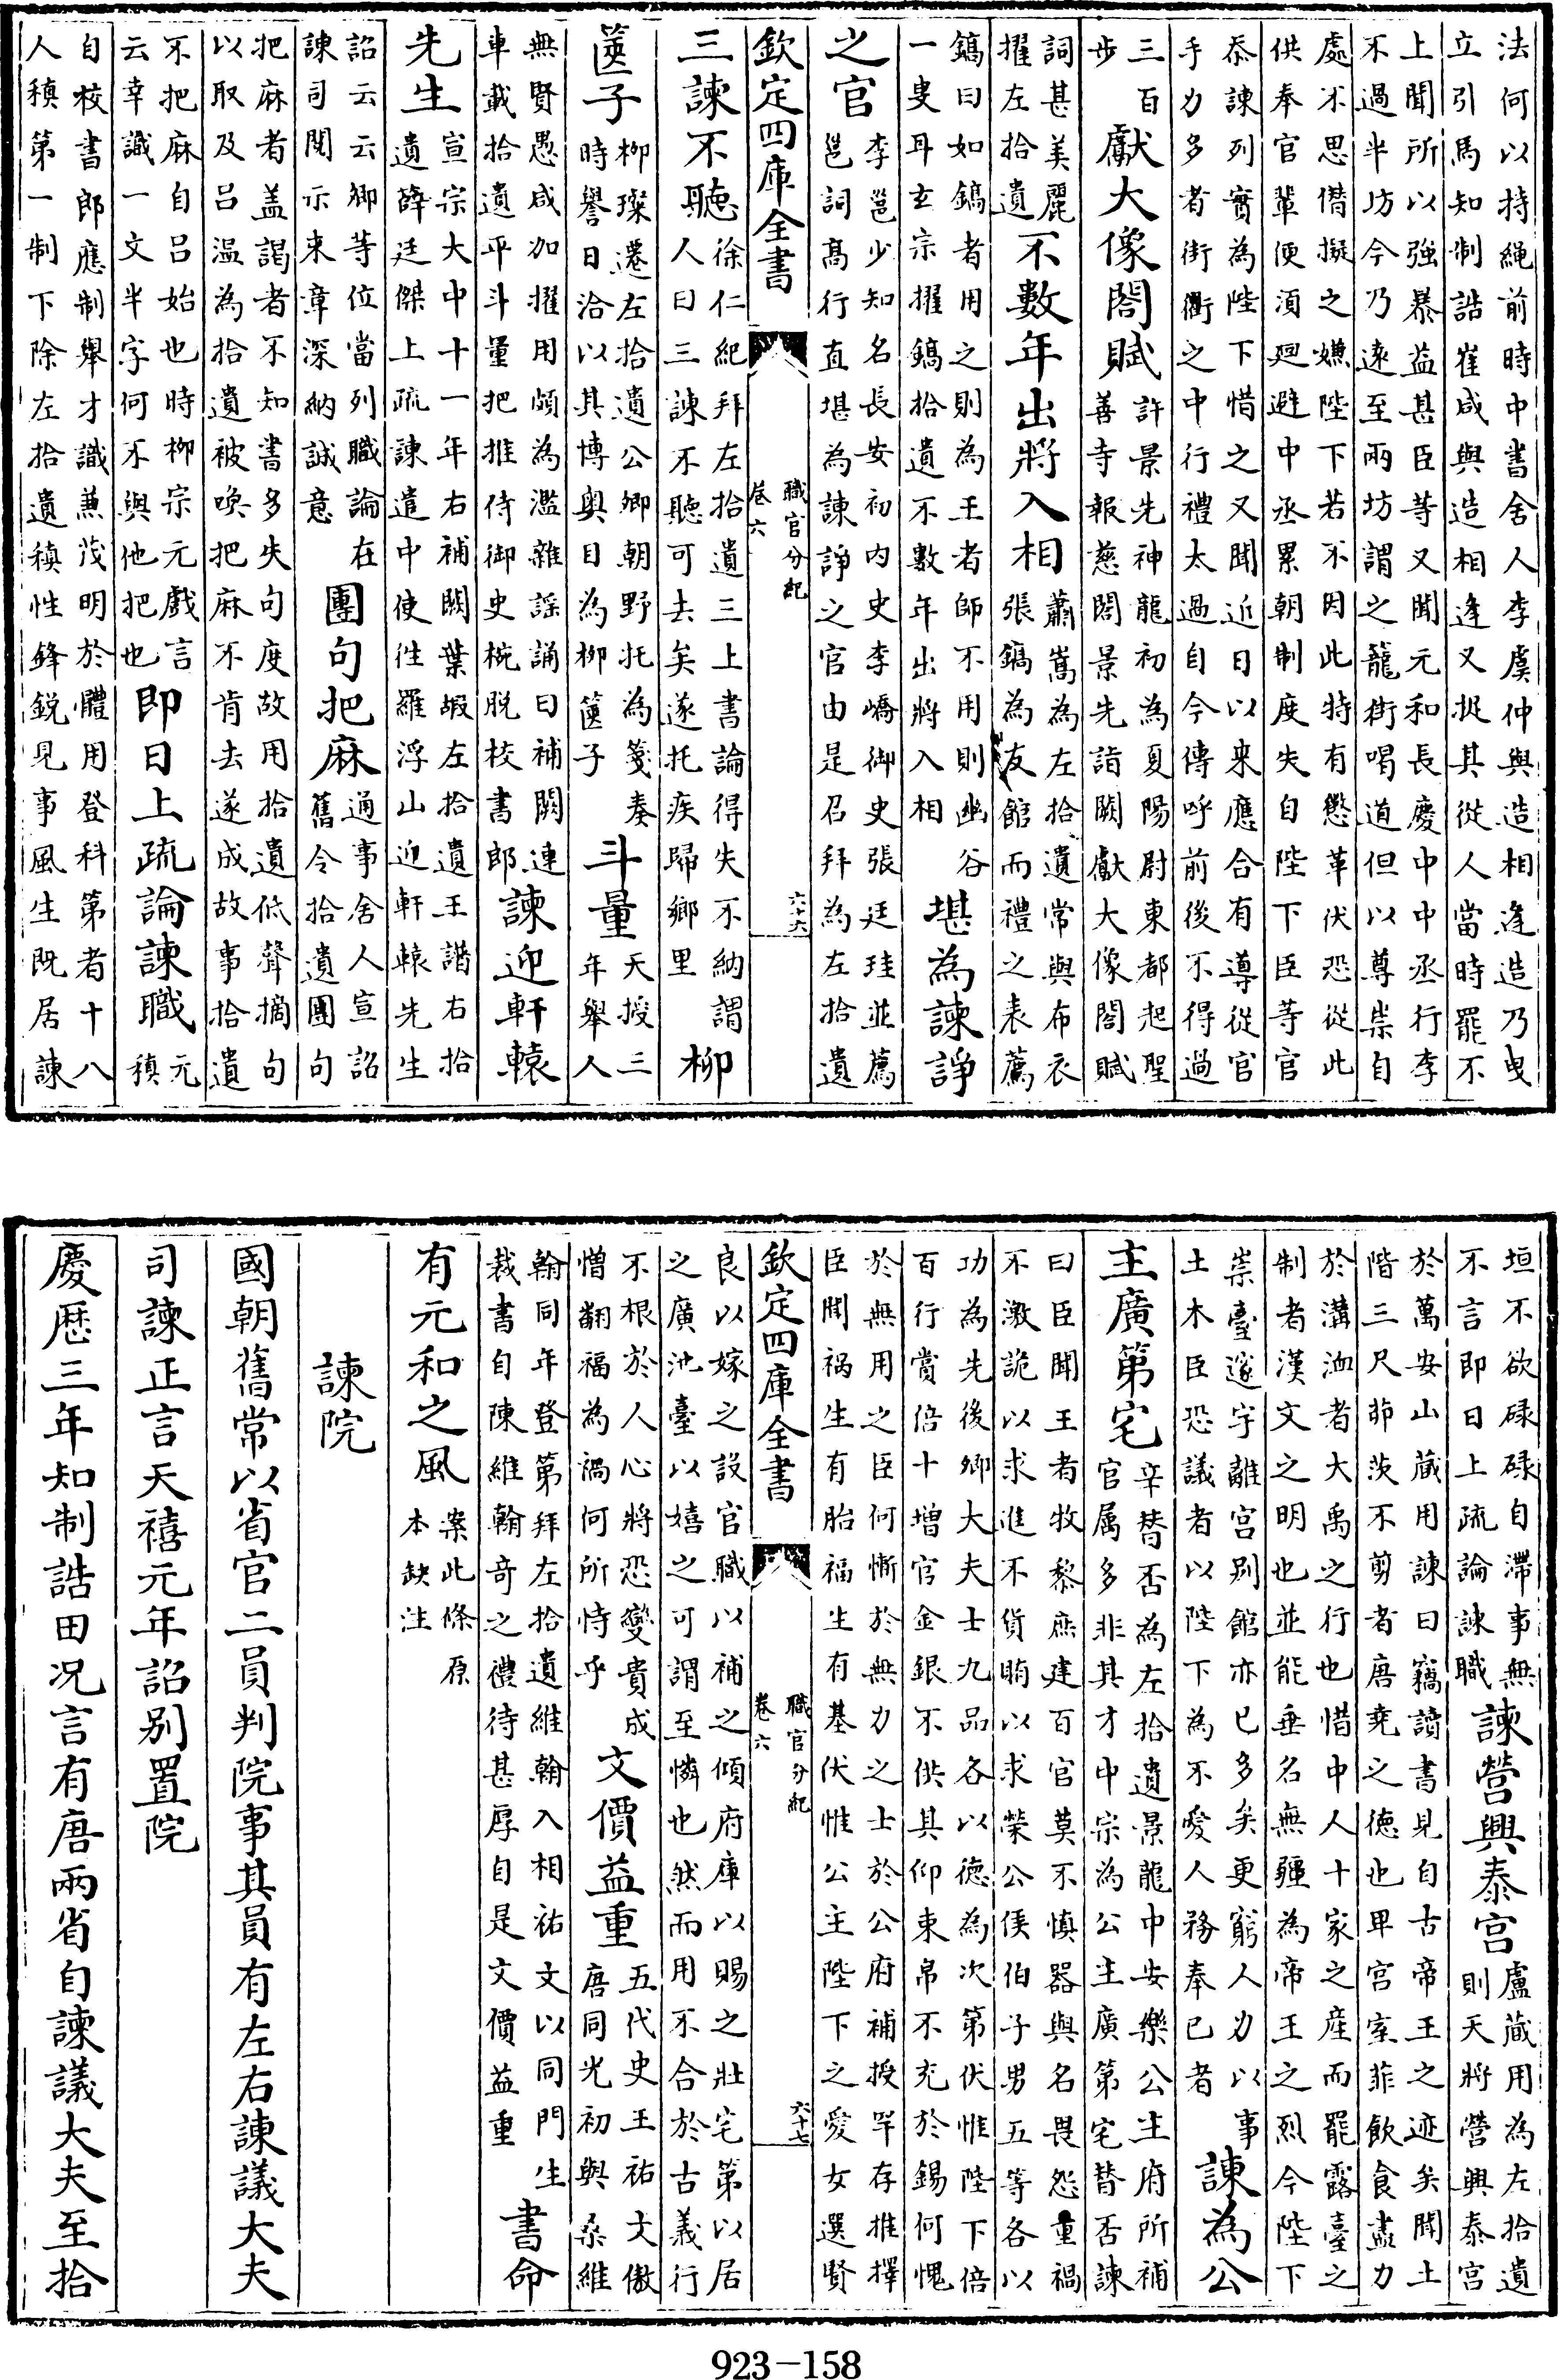 法何以持繩前時中書舍人李虞仲與造相逢造乃曳
立引馬知制誥崔咸與造相逢又捉其從人當時罷不
上聞所以強暴益甚臣等又聞元和長慶中中丞行李
不過半坊今乃遠至兩坊謂之籠街喝道但以尊崇自
處不思僭擬之嫌陛下若不因此特有懲革伏恐從此
供奉官輩便須廻避中丞累朝制度失自陛下臣等官
忝諫列實為陛下惜之又聞近日以来應合有導從官
手力多者街衢之中行禮太過自今傳呼前後不得過
三百
步
獻大像閣賦
許景先神龍初為夏陽尉東都起聖
善寺報慈閣景先詣闕獻大像閣賦
詞甚美麗
擢左拾遺
不數年出將入相
蕭嵩為左拾遺常與布衣
張鎬為友館而禮之表薦
鎬曰如鎬者用之則為王者師不用則幽谷
一叟耳玄宗擢鎬拾遺不數年出將入相
堪為諫諍
之官
李邕少知名長安初内史李嶠御史張廷珪並薦
邕詞髙行直堪為諫諍之官由是召拜為左拾遺
欽定四庫全書
職官分紀
卷六
六十六
三諫不聽
徐仁紀拜左拾遺三上書論得失不納謂
人曰三諫不聽可去矣遂托疾歸鄉里
柳
篋子
柳璨遷左拾遺公卿朝野托為箋奏
時譽日洽以其博奥目為柳篋子
斗量
天授三
年舉人
無賢愚咸加擢用頗為濫雜謡誦曰補闕連
車載拾遺平斗量把推侍御史椀脱校書郎
諫迎軒轅
先生
宣宗大中十一年右補闕葉嘏左拾遺王譜右拾
遺薛廷傑上疏諫遣中使往羅浮山迎軒轅先生
詔云云卿等位當列職論在
諫司閱示来章深納誠意
團句把麻
通事舍人宣詔
舊令拾遺團句
把麻者盖謁者不知書多失句度故用拾遺低聲摘句
以取及吕温為拾遺被喚把麻不肯去遂成故事拾遺
不把麻自吕始也時柳宗元戲言
云幸識一文半字何不與他把也
即日上疏論諫職
元
稹
自校書郎應制舉才識兼茂明於體用登科第者十八
人稹第一制下除左拾遺稹性鋒鋭見事風生既居諫
垣不欲碌碌自滯事無
不言即日上疏論諫職
諫營興泰宫
盧藏用為左拾遺
則天將營興泰宫
於萬安山藏用諫曰竊讀書見自古帝王之迹矣聞土
階三尺茆茨不剪者唐堯之德也卑宫室菲飲食盡力
於溝洫者大禹之行也惜中人十家之産而罷露臺之
制者漢文之明也並能垂名無疆為帝王之烈今陛下
崇臺邃宇離宫别館亦已多矣更窮人力以事
土木臣恐議者以陛下為不愛人務奉已者
諫為公
主廣第宅
辛替否為左拾遺景龍中安樂公主府所補
官属多非其才中宗為公主廣第宅替否諫
曰臣聞王者牧黎庶建百官莫不慎器與名畏怨重禍
不激詭以求進不貨賄以求榮公侯伯子男五等各以
功為先後卿大夫士九品各以德為次第伏惟陛下倍
百行賞倍十增官金銀不供其仰束帛不充於錫何愧
於無用之臣何慚於無力之士於公府補授罕存推擇
臣聞禍生有胎福生有基伏惟公主陛下之愛女選賢
欽定四庫全書
職官分紀
卷六
六十七
良以嫁之設官職以補之傾府庫以賜之壯宅第以居
之廣池臺以嬉之可謂至憐也然而用不合於古義行
不根於人心將恐變貴成
憎翻福為禍何所恃乎
文價益重
五代史王祐文傲
唐同光初與桑維
翰同年登第拜左拾遺維翰入相祐文以同門生
裁書自陳維翰奇之禮待甚厚自是文價益重
書命
有元和之風
案此條原
本缺注
諫院
國朝舊常以省官二員判院事其員有左右諫議大夫
司諫正言天禧元年詔别置院
慶歷三年知制誥田况言有唐兩省自諫議大夫至拾
923-158